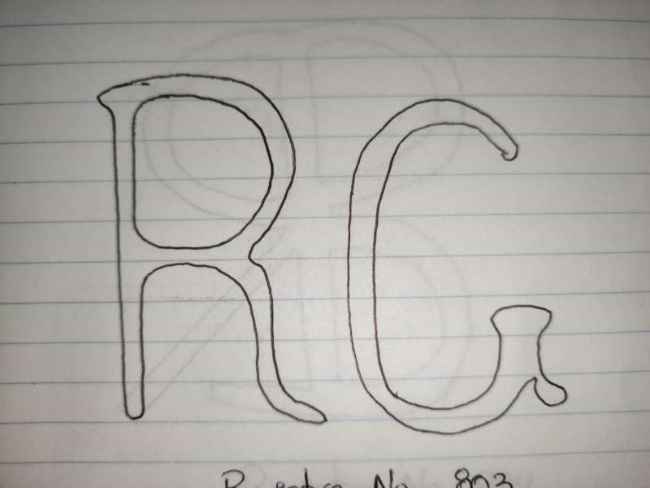 RG
No 803